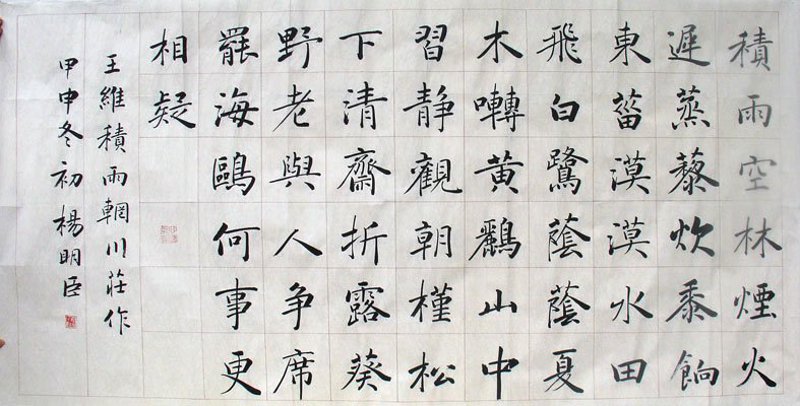 積雨空林煙火
遲蒸藜炊黍餉
東菑漠漠水田
飛白鷺蔭蔭夏
木囀黃鸝山中
習靜觀朝槿松
下清齋折露葵
野老與人争席
罷海鷗何事更
相疑
王維積雨輞川莊作
甲申冬初楊明臣